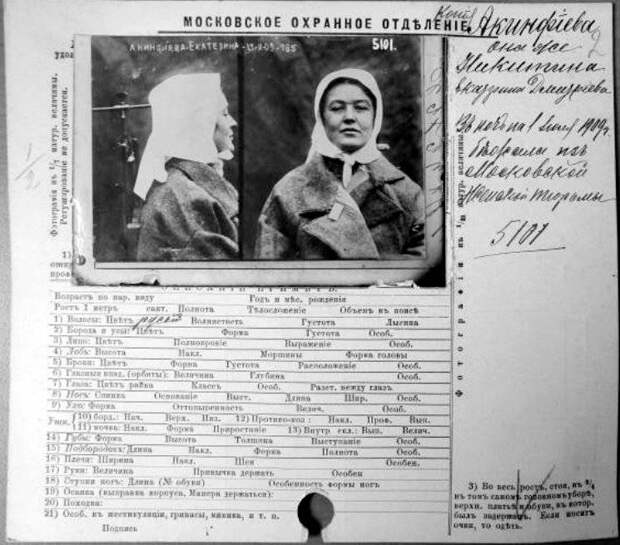 МОСКОВСКОЕ ОХРАННОЕ ОТДѢЛЕНІЕ
Копія
Акинфіева
она же
Никитина
Екатерина Дмитріева
2
В ночь на 1 Іюля 1909 г.
бежала из
Московской
Женской тюрьмы
5101
АКИНФІЕВА-ЕКАТЕРИНА
5101.
Фотографія въ 1/7 натур. величины.
Ретушированіе не допускается.
1/2
1)
Возрастъ по нар. виду Годъ и мѣс. рожденія
Ростъ 1 метръ сант. Полнота Тѣлосложеніе Объемъ въ поясѣ
1) Волосы: Цвѣтъ русый Волнистость Густота Лысина
2) Борода и усы: Цвѣтъ Форма Густота Особ.
3) Лицо: Цвѣтъ Полнокровіе Выраженіе Особ.
4) Лобъ: Высота Накл. Морщины Форма головы
5) Брови: Цвѣтъ Форма Густота Расположеніе Особ.
6) Глазныя впад. (орбиты): Величина Глубина Особ.
7) Глаза: Цвѣтъ райка Классъ Особ. Разст. между глазъ
8) Носъ: Спинка Основаніе Выст. Длина Шир. Особ.
9) Ухо: Форма Оттопыренность Велич. Особ.
Ушн. 10) борд.: Нач. Верх. Низ. 12) Противо-коз: Накл. Проф. Вып.
11) мочка: Накл. Форма Приростаніе 13) Внутр. скл.: Вып. Велич.
14) Губы: Форма Высота Толщина Выступаніе Особ.
15) Подбородокъ: Длина Накл. Форма Полнота Особ.
16) Плечи: Ширина Накл. Шея Особен.
17) Руки: Величина Привычка держать Особен
18) Ступни ногъ: Длина (№ обуви) Особенность формы ногъ
19) Осанка (выправка корпуса, Манера держаться):
20) Походка:
21) Особ. въ жестикуляціи, гримасы, мимика, и т. п.
Подпись
Фотографія въ
натур. величины
3) Во весь ростъ, стоя, въ
въ томъ самомъ головномъ уборѣ,
верхн. платьѣ и обуви, въ кото-
рыхъ былъ задержанъ. Если носитъ
очки, то одѣть.